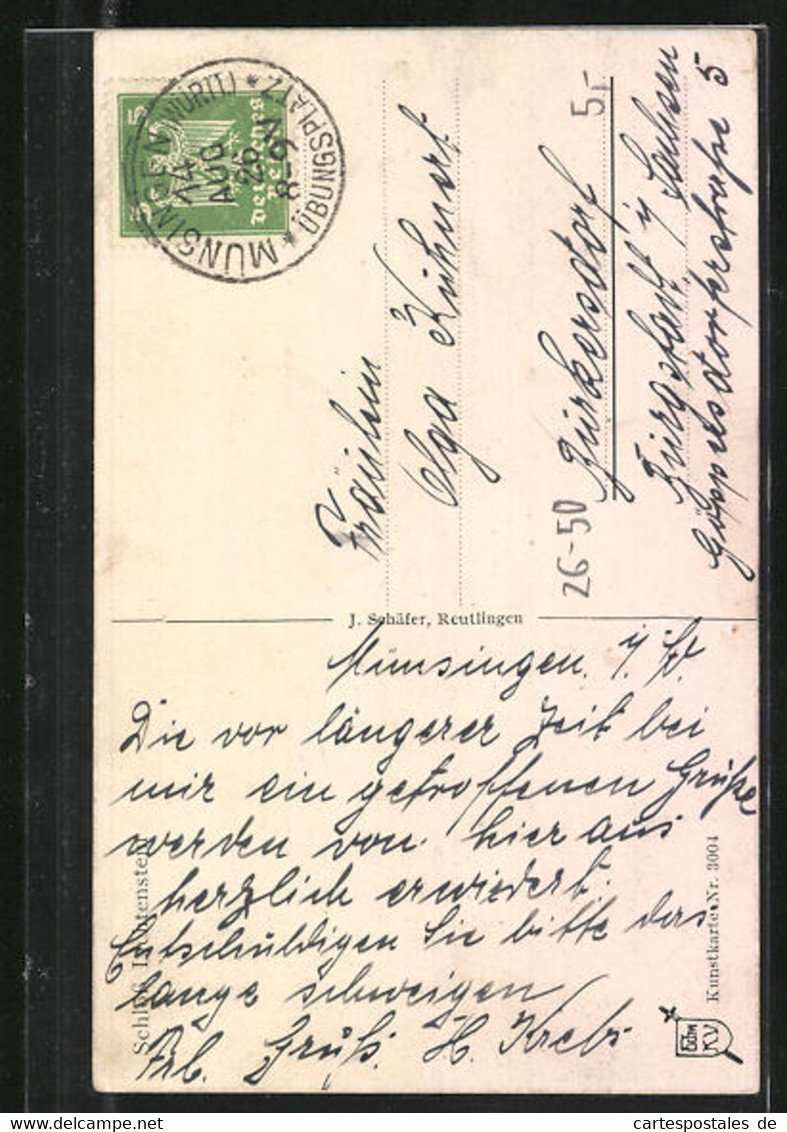 MÜNSINGEN (WÜRTT)
14
AUG
26
8-9 V
ÜBUNGSPLATZ
5 5
Deutsches
Reich
Fräulein
Olga Kühnert
Burkersdorf
Burgstädt i/ Sachsen
Göppersdorferstraße 5
5,-
26-50
J. Schäfer, Reutlingen
Münsingen. i/ W.
Die vor längerer Zeit bei
mir ein getroffenen Grüße
werden von hier aus
herzlich erwiedert.
Entschuldigen Sie bitte das
lange schweigen
Frl. Gruß. H. Krebs
Schloß Lichtenstein
Kunstkarte Nr. 3004
KV
cartespostales de